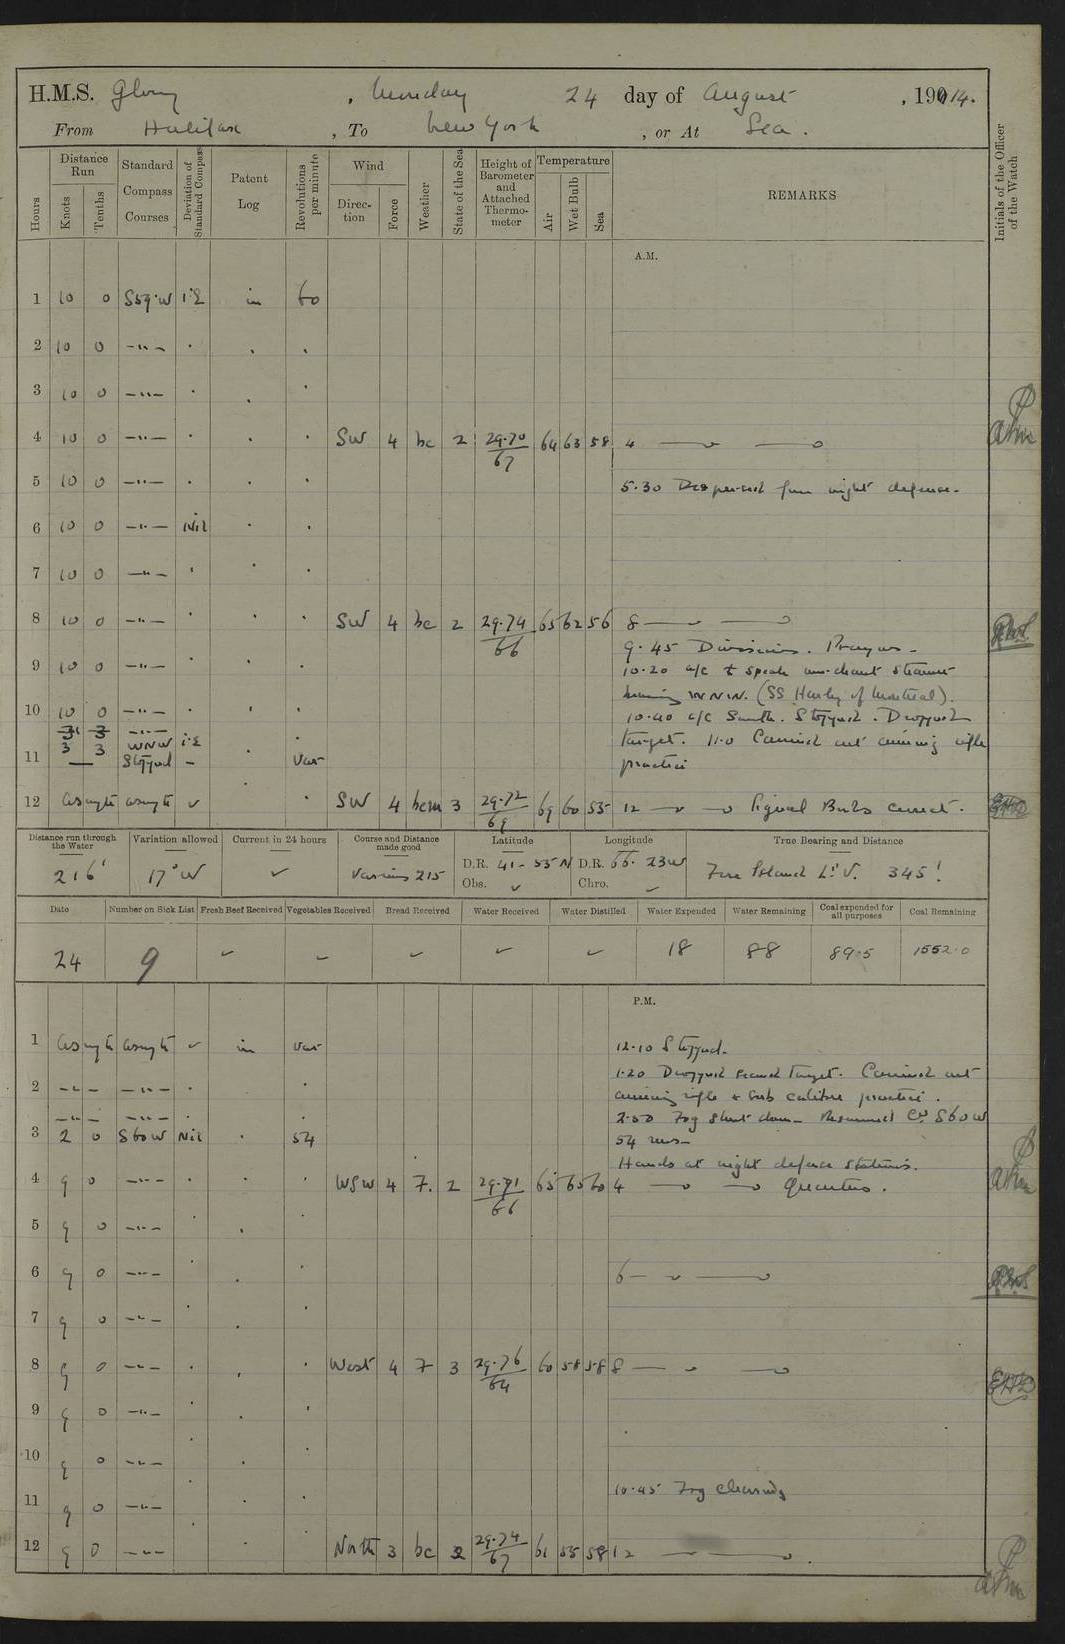 H.M.S. Glory , Monday 24 day of August , 1914.
From Halifax , To New York , or At Sea .
Hours
Distance Run
Knots
Tenths
Standard Compass Courses
Deviation of Standard Compass
Patent Log
Revolutions per minute
Wind
Direction
Force
Weather
State of the Sea
Height of Barometer and Attached Thermometer
Temperature
Air
Wet Bulb
Sea
REMARKS
Initials of the Officer of the Watch
A.M.
1 10 0 S59·W 1·E in 60
2 10 0 -"- . . .
3 10 0 -"- . . .
4 10 0 -"- . . . SW 4 bc 2 29·70/67 64 63 58 4
5 10 0 -"- . . .
5·30 Dispersed from night defence.
6 10 0 -"- Nil . .
7 10 0 -"- . . .
8 10 0 -"- . . . SW 4 bc 2 29·74/66 65 62 56 8
9·45 Divisions. Prayers.
9 10 0 -"- . . .
10·20 a/c to speak merchant steamer
bearing WNW. (SS Harley of Montreal).
10 10 0 -"- . . .
10·40 a/c South. Stopped. Dropped
3 3 WNW 1·E
target. 11·0 Carried out aiming rifle
11 — Stopped - Var
practice
12 Asreqte asreqte ✓ . . SW 4 bcm 3 29·72/69 69 60 55 12 Signal Books correct.
Distance run through the Water 216'
Variation allowed 17°W
Current in 24 hours ✓
Course and Distance made good Various 215
Latitude D.R. 41-55N Obs. ✓
Longitude D.R. 66·23W Chro. ✓
True Bearing and Distance Fire Island Lt V. 345'
Date Number on Sick List Fresh Beef Received Vegetables Received Bread Received Water Received Water Distilled Water Expended Water Remaining Coal expended for all purposes Coal Remaining
24 9 ✓ ✓ ✓ ✓ ✓ 18 88 89·5 1552·0
P.M.
1 Asreqte asreqte ✓ in var
12·10 Stopped.
2 -"- -"- . .
1·20 Dropped second target. Carried out
aiming rifle & sub calibre practice.
-"- -"- .
2·50 Fog shut down. Resumed Co S60W
3 2 0 S60W Nil . 54
54 revs
Hands at night defence stations.
4 9 0 -"- . . . WSW 4 F. 2 29·71/66 65 65 60 4 Quarters.
5 9 0 -"- . .
6 9 0 -"- . . . 6
7 9 0 -"- . . .
8 9 0 -"- . . . West 4 F 3 29·76/64 60 58 58 8
9 9 0 -"- . . .
10 9 0 -"- . . .
10·45 Fog clearing
11 9 0 -"- . . .
12 9 0 -"- . . . North 3 bc 2 29·74/67 61 55 58 12